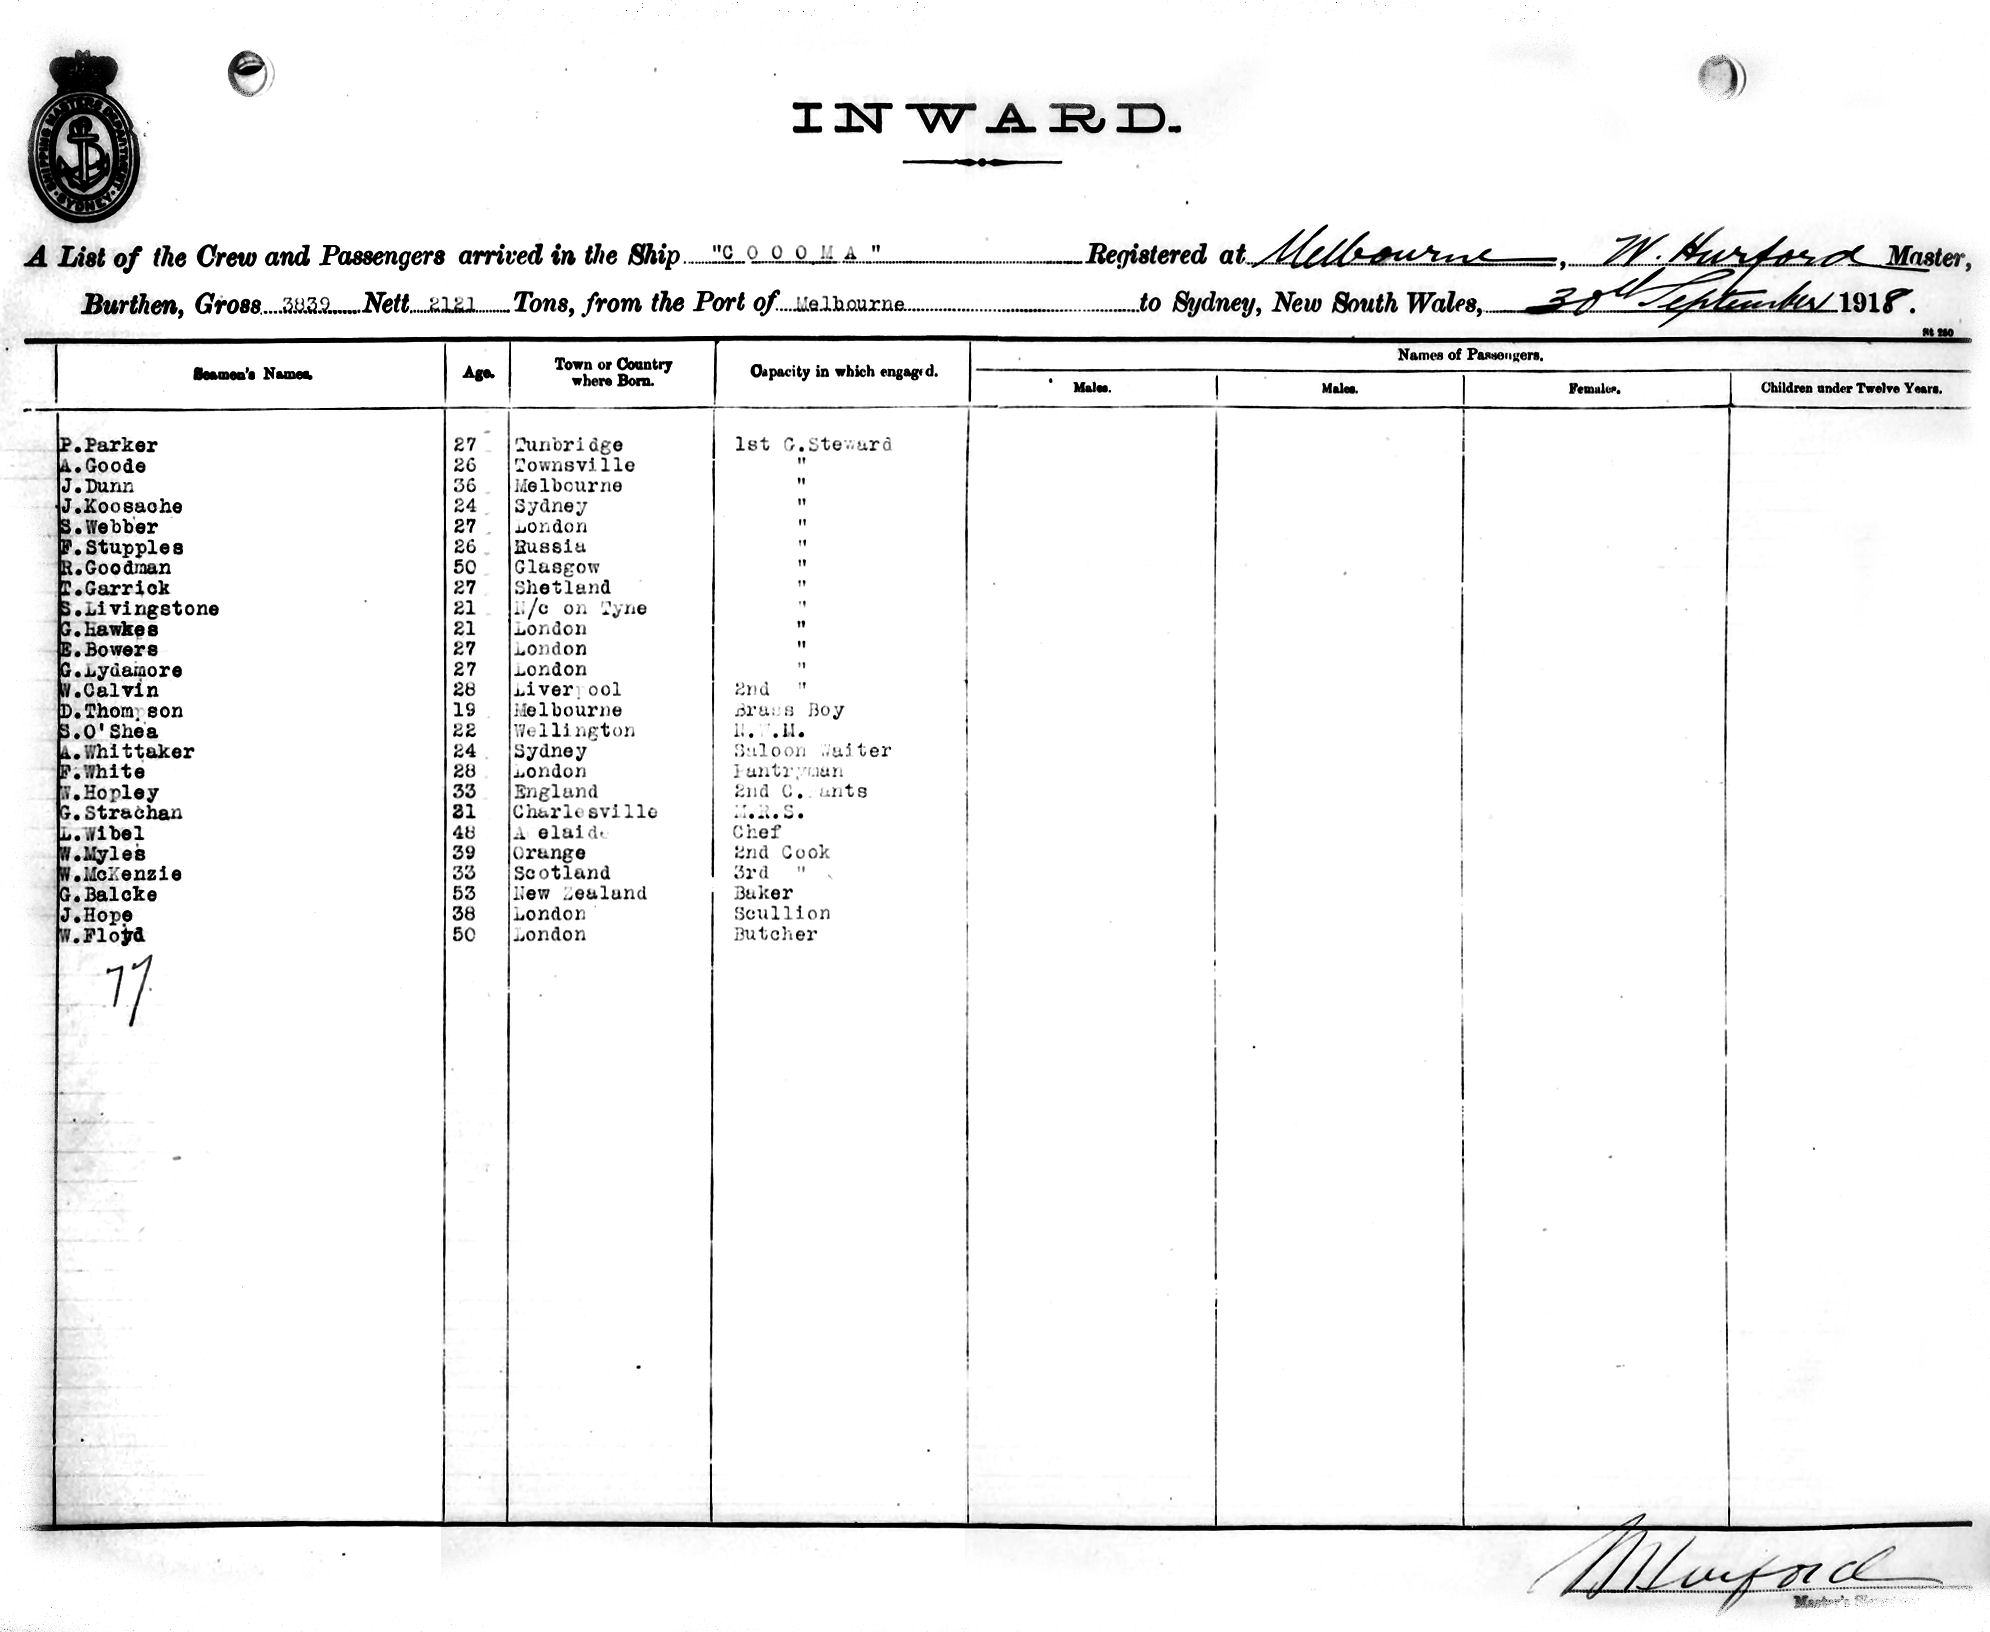 SHIPPING MASTERS DEPARTMENT SYDNEY
INWARD.
A List of the Crew and Passengers arrived in the Ship "COOOMA" Registered at Melbourne, W. Hurford Master,
Burthen, Gross 3839 Nett 2121 Tons, from the Port of Melbourne to Sydney, New South Wales, 30th September 1918.
St 280
Seamen's Names. Age. Town or Country where Born. Capacity in which engaged. Names of Passengers.
Males. Males. Females. Children under Twelve Years.
P.Parker 27 Tunbridge 1st C.Steward
A.Goode 26 Townsville "
J.Dunn 36 Melbourne "
J.Koosache 24 Sydney "
S.Webber 27 London "
F.Stupples 26 Russia "
R.Goodman 50 Glasgow "
T.Garrick 27 Shetland "
S.Livingstone 21 N/c on Tyne "
G.Hawkes 21 London "
E.Bowers 27 London "
G.Lydamore 27 London "
W.Calvin 28 Liverpool 2nd "
D.Thompson 19 Melbourne Brass Boy
S.O'Shea 22 Wellington
A.Whittaker 24 Sydney Saloon Waiter
F.White 28 London Pantryman
W.Hopley 33 England 2nd C.
G.Strachan 31 Charlesville M.R.S.
L.Wibel 48 Adelaide Chef
W.Myles 39 Orange 2nd Cook
W.McKenzie 33 Scotland 3rd "
G.Balcke 53 New Zealand Baker
J.Hope 38 London Scullion
W.Floyd 50 London Butcher
77
W Hurford
Master's